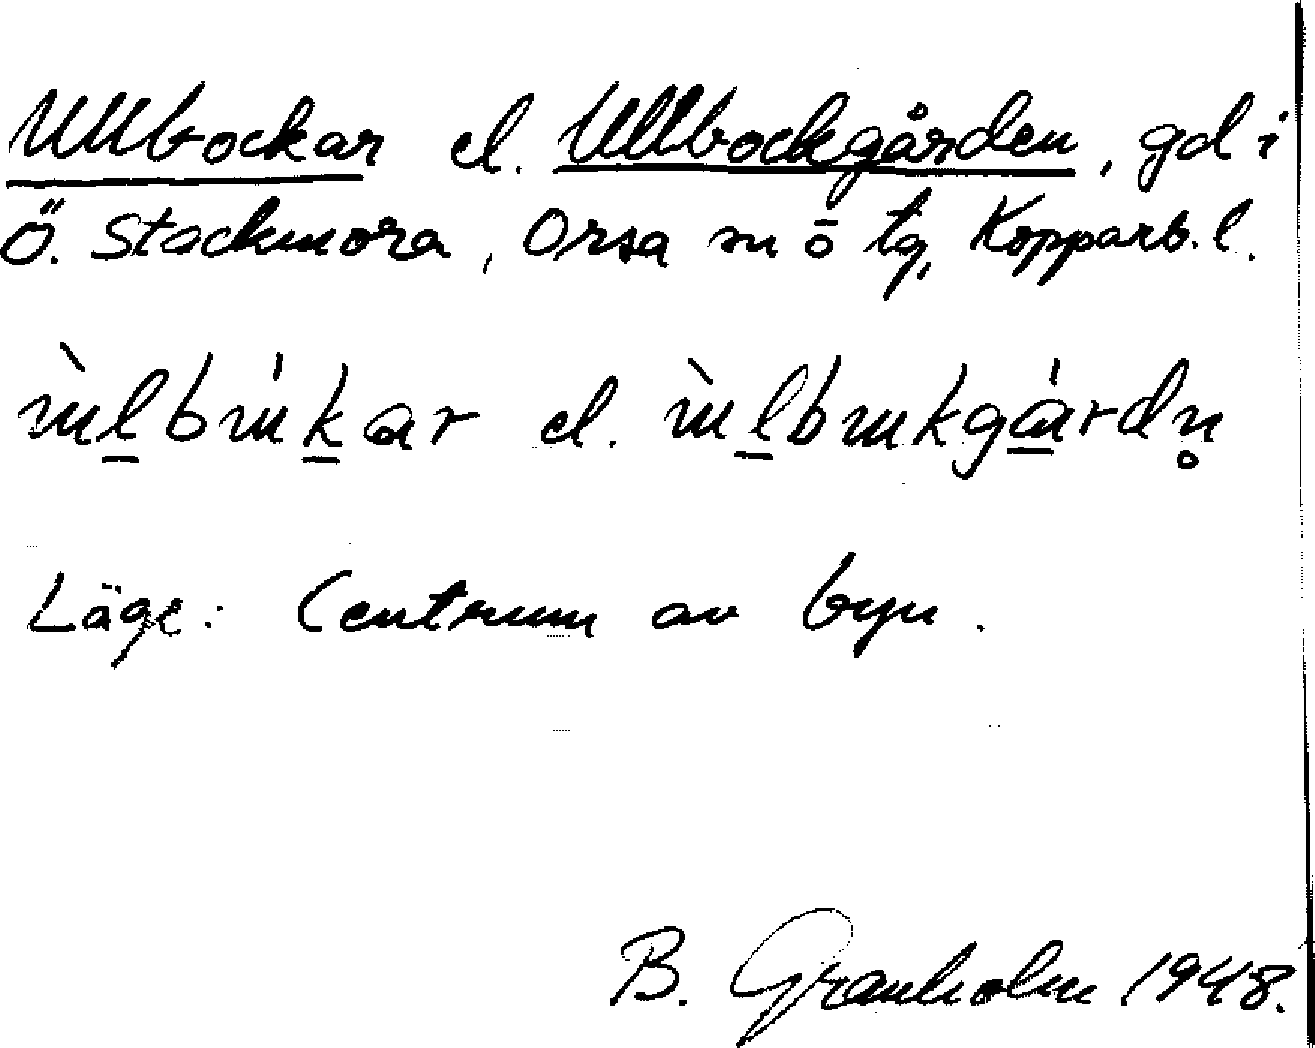 Ullbockar el. Ullbockgården, gd i
Ö. Stackmora, Orsa sn o tg, Kopparb. l.
ùlbúkar el. ùlbukgárdn̥
Läge: Centrum av byn.
B. Granholm 1948.